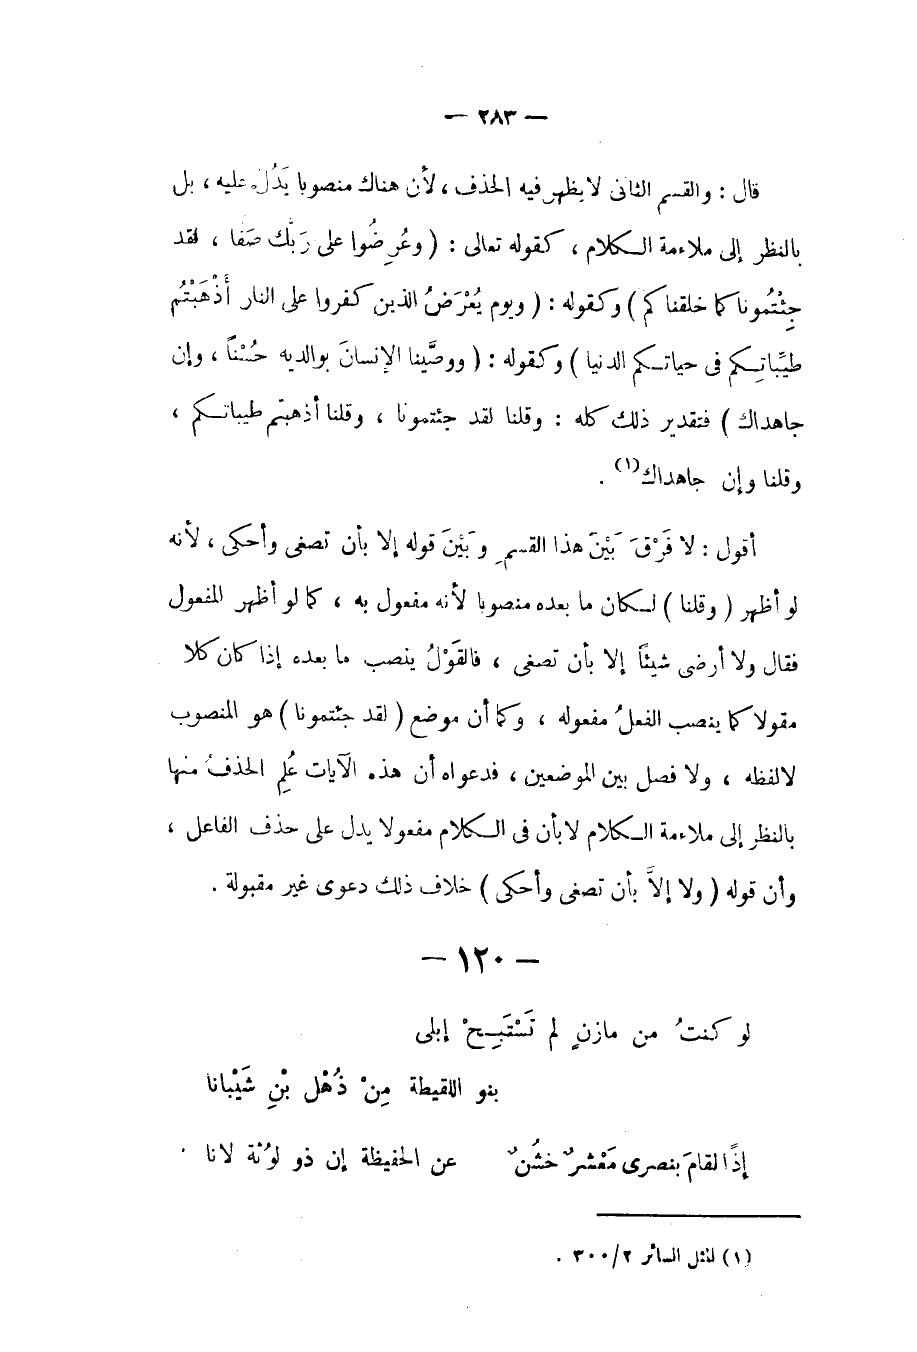 — ٢٨٣ —
قال : والقسم الثانى لا يظهر فيه الحذف ، لأن هناك منصوبا يَدُلّ عليه ، بل
بالنظر إلى ملاءمة الـكلام ، كقوله تعالى : ( وعُرِضُوا على رَبِّك صَفا ، لقد
جِئْتُمونا كما خلقناكم ) وكقوله : ( ويوم يُعْرَضُ الذين كفروا على النار أَذْهَبْتُم
طيِّباتِـكم فى حياتـكم الدنيا ) وكقوله : ( ووصَّينا الإنسانَ بوالديه حُسْناً ، وإن
جاهداك ) فتقدير ذلك كله : وقلنا لقد جئتمونا ، وقلنا أذهبتم طيباتـكم ،
وقلنا وإن جاهداك(١) .
أقول : لا فَرْقَ بَيْنَ هذا القسمِ وبَيْنَ قوله إلا بأن تصغى وأحكى ، لأنه
لو أظهر ( وقلنا ) لـكان ما بعده منصوبا لأنه مفعول به ، كما لو أظهر المفعول
فقال ولا أرضى شيئاً إلا بأن تصغى ، فالقَوْلُ ينصب ما بعده إذا كان كلا
مقولا كما ينصب الفعلُ مفعوله ، وكما أن موضع ( لقد جئتمونا ) هو المنصوب
لا لفظه ، ولا فصل بين الموضعين ، فدعواه أن هذه الآيات عُلِم الحذفُ منها
بالنظر إلى ملاءمة الـكلام لا بأن فى الـكلام مفعولا يدل على حذف الفاعل ،
وأن قوله ( ولا إلاَّ بأن تصغى وأحكى ) خلاف ذلك دعوى غير مقبولة .
— ١٢٠ —
لو كنتُ من مازنٍ لم تَسْتَبِـحْ إبلى
بنو اللقيطة مِنْ ذُهْل بْنِ شَيْبانا
إذًا لقامَ بنصرى مَعْشرٌ خشُنٌ عن الحفيظة إن ذو لوْثة لانا .
(١) المثل السائر ٢/٣٠٠ .